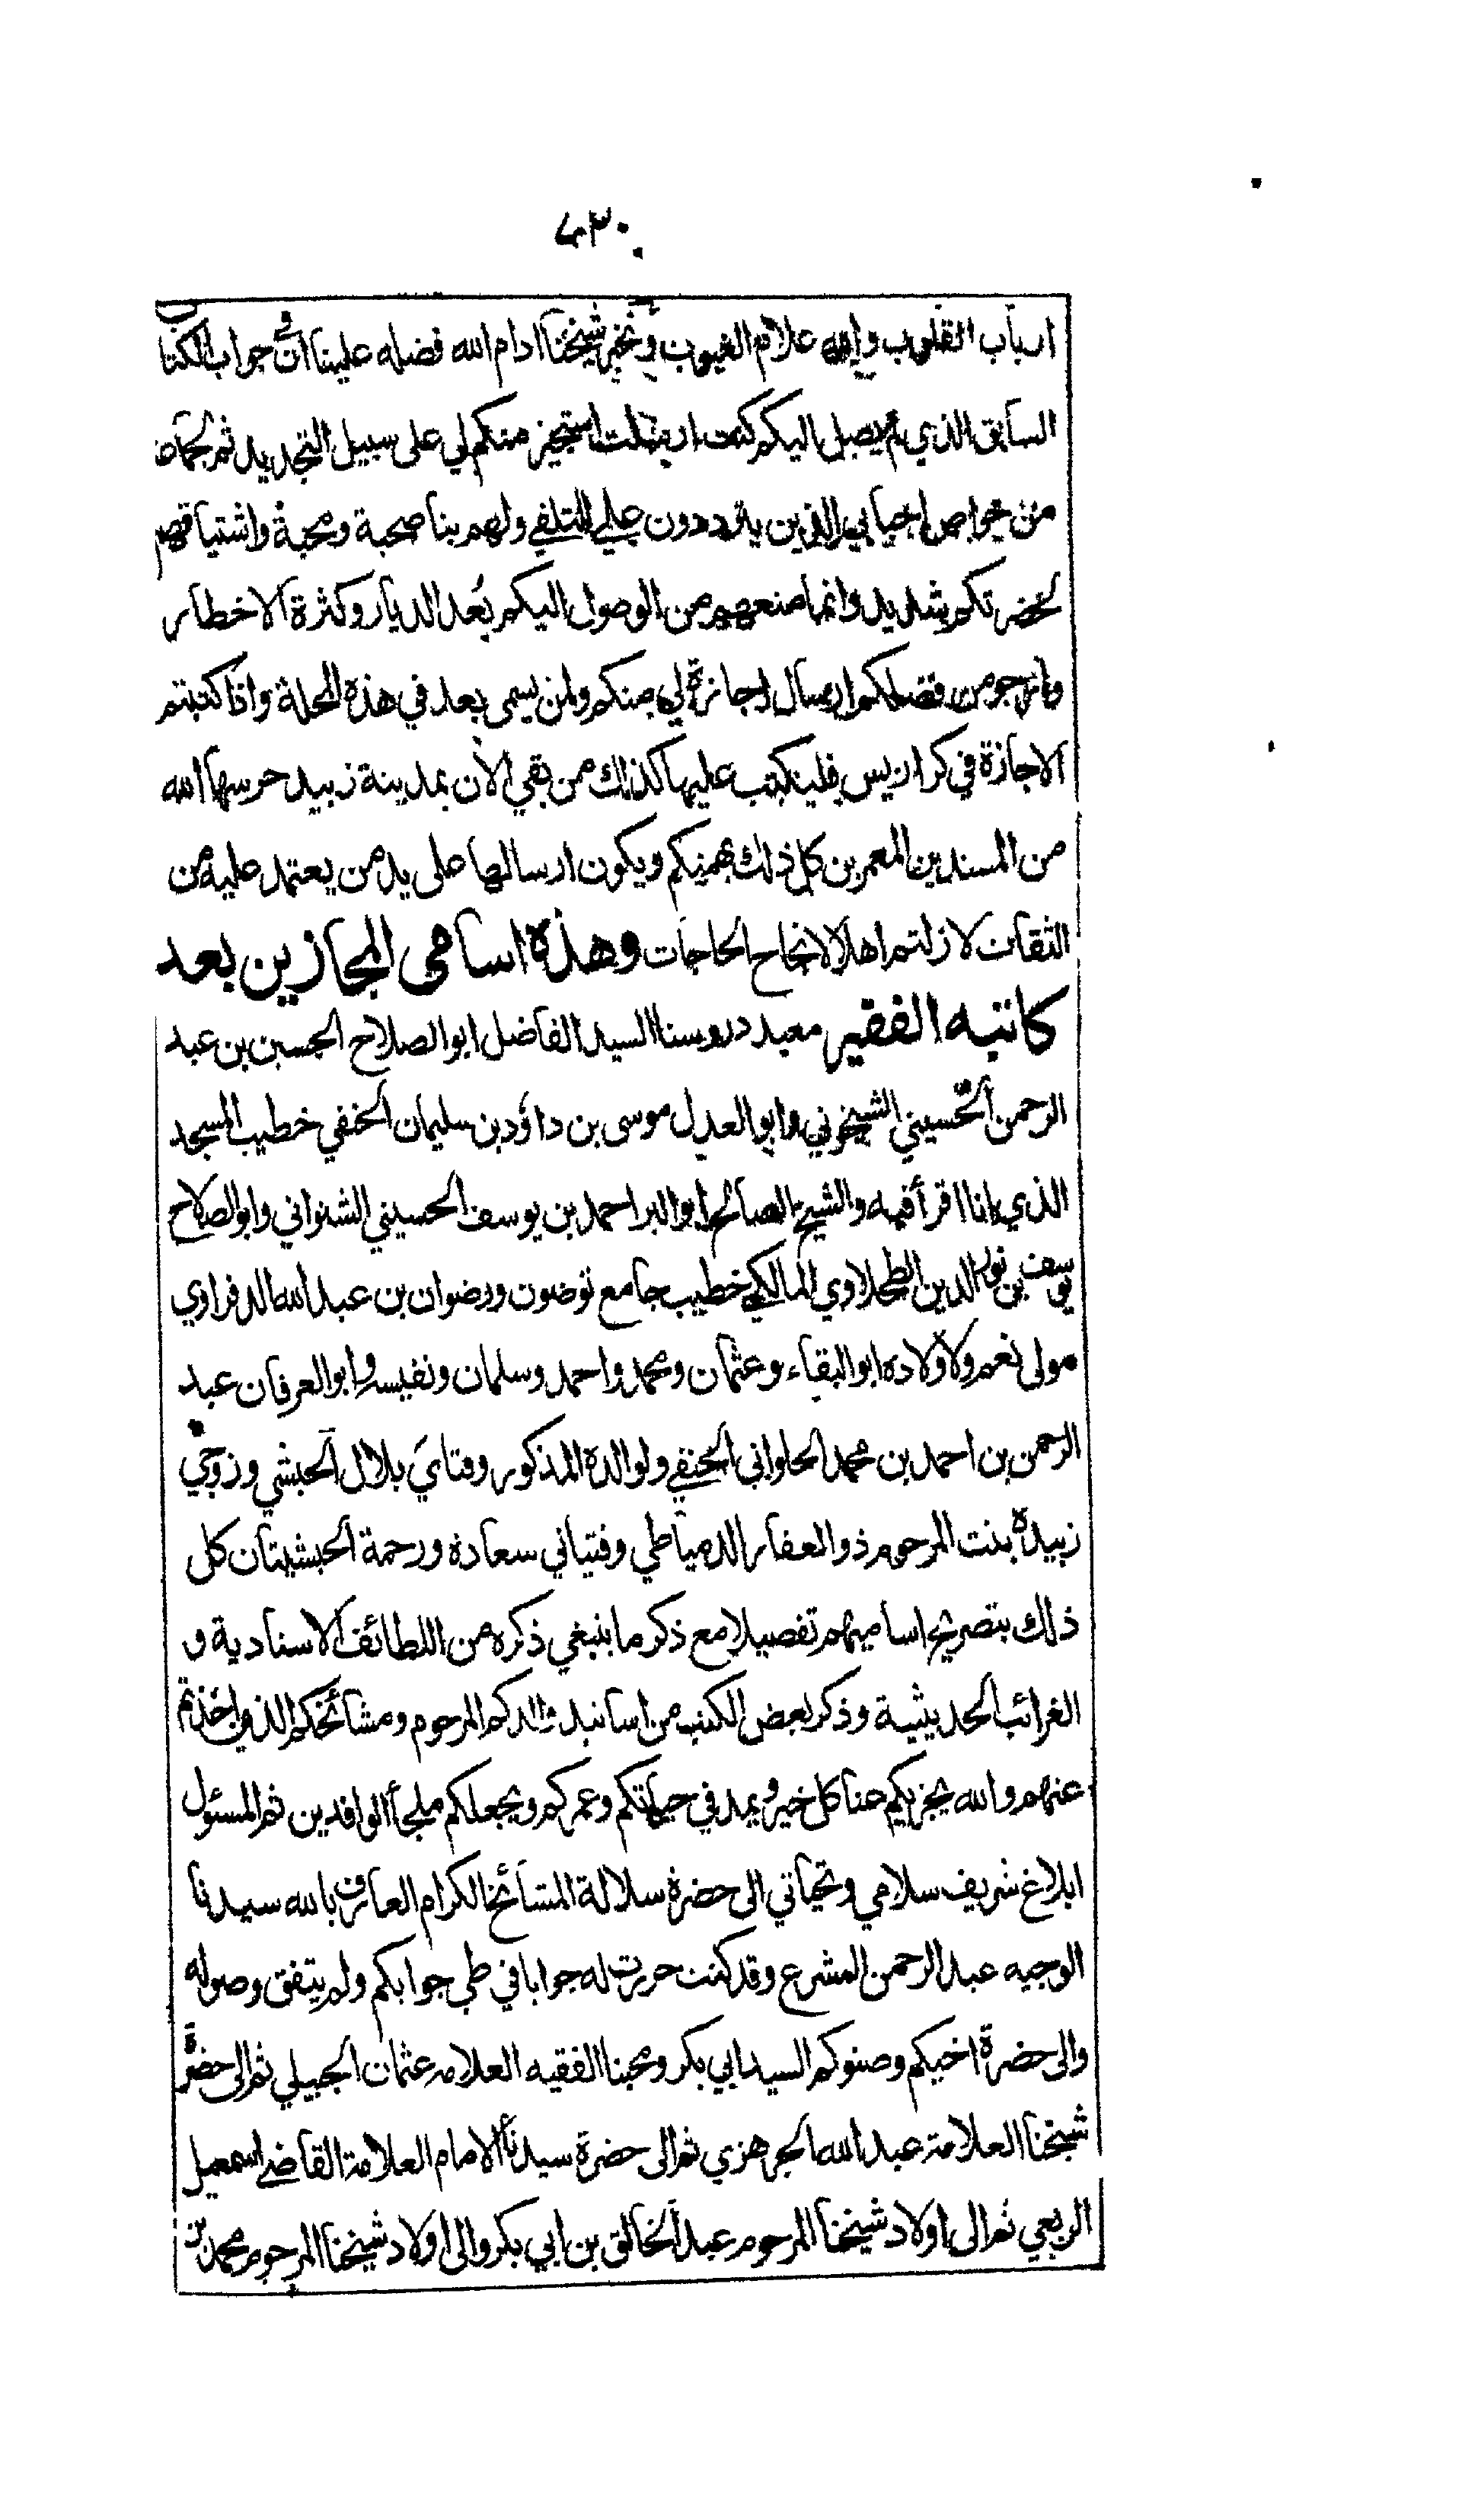 ٤٣٠
ارباب القلوب والله علام الغيوب ونخبر شيخنا ادام الله فضله علينا ان في جواب الكتاب
السابق الذي لم يصل اليكم كنت ارسلت استجيز منكم لي على سبيل التجديد ثم لجماعة
من خواص احبابي الذين يترددون علي للتلقي ولهم بنا صحبة ومحبة واشتياقهم
لحضرتكم شديد وانما منعهم من الوصول اليكم بُعد الديار وكثرة الاخطار
وارجو من فضلكم ارسال اجازة لي منكم ولمن يسمى بعد في هذه المحلة واذا كتبتم
الاجازة في كراريس فليكتب عليها كذلك من بقي الآن بمدينة زبيد حرسها الله
من المسندين المعمرين كل ذلك بهمتكم ويكون ارسالها على يد من يعتمد عليه من
الثقات لا زلتم اهلا لانجاح الحاجات وهذه اسامى المجازين بعد
كاتبه الفقير معيد دروسنا السيد الفاضل ابو الصلاح الحسين بن عبد
الرحمن الحسيني الشيخوني وابو العدل موسى بن داؤد بن سليمان الحنفي خطيب المسجد
الذي انا اقرأ فيه والشيخ الصالح ابو البر احمد بن يوسف الحسيني الشنواني وابو الصلاح
يوسف بن نور الدين الطحلاوي المالكي خطيب جامع توضون ورضوان بن عبد الله الدفراوي
مولى نغم ولاولاده ابو البقاء وعثمان ومحمد واحمد وسلمان ونفيسه وابو العرفان عبد
الرحمن بن احمد بن محمد الحلواني الحنفي ولوالده المذكور وفتاي بلال الحبشي وزوجتي
زبيدة بنت المرحوم ذو الفقار الدمياطي وفتياني سعادة ورحمة الحبشيتان كل
ذلك بتصريح اساميهم تفصيلا مع ذكر ما ينبغي ذكره من اللطائف الاسنادية و
الغرائب الحديثية وذكر بعض الكتب من اسانيد والدكم المرحوم ومشائخكم الذين اخذتم
عنهم والله يجزيكم عنا كل خير ويمد في حياتكم وعمركم ويجعلكم ملجأ الوافدين ثم المسئول
ابلاغ شريف سلامي وتحياتي الى حضرة سلالة المشائخ الكرام العارف بالله سيدنا
الوجيه عبد الرحمن المشرع وقد كنت حررت له جوابا في طي جوابكم ولم يتفق وصوله
والى حضرة اخيكم وصنوكم السيد ابي بكر ومحبنا الفقيه العلامه عثمان الجبيلي ثم الى حضرة
شيخنا العلامة عبد الله الجرهزي ثم الى حضرة سيدنا الامام العلامة القاضي اسمعيل
الربعي ثم الى اولاد شيخنا المرحوم عبد الخالق بن ابي بكر والى اولاد شيخنا المرحوم محمد بن